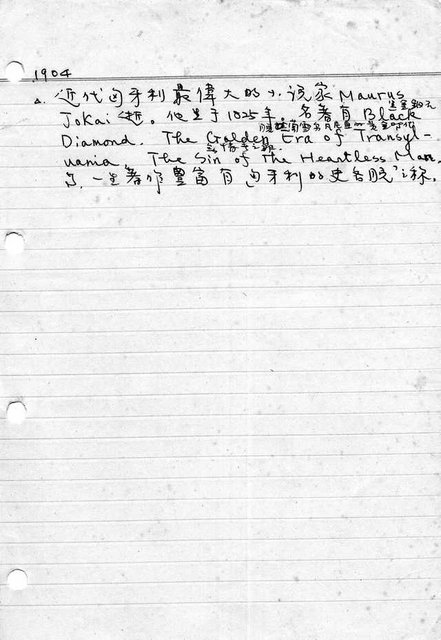 1904
△ 近代匈牙利最偉大的小説家 Maurus
Jokai 逝。他生于1825年。名著有 Black
Diamond. The Golden Era of Transyl-
vania. The Sin of The Heartless Man
一生著作豐富有匈牙利的史各脱之称。